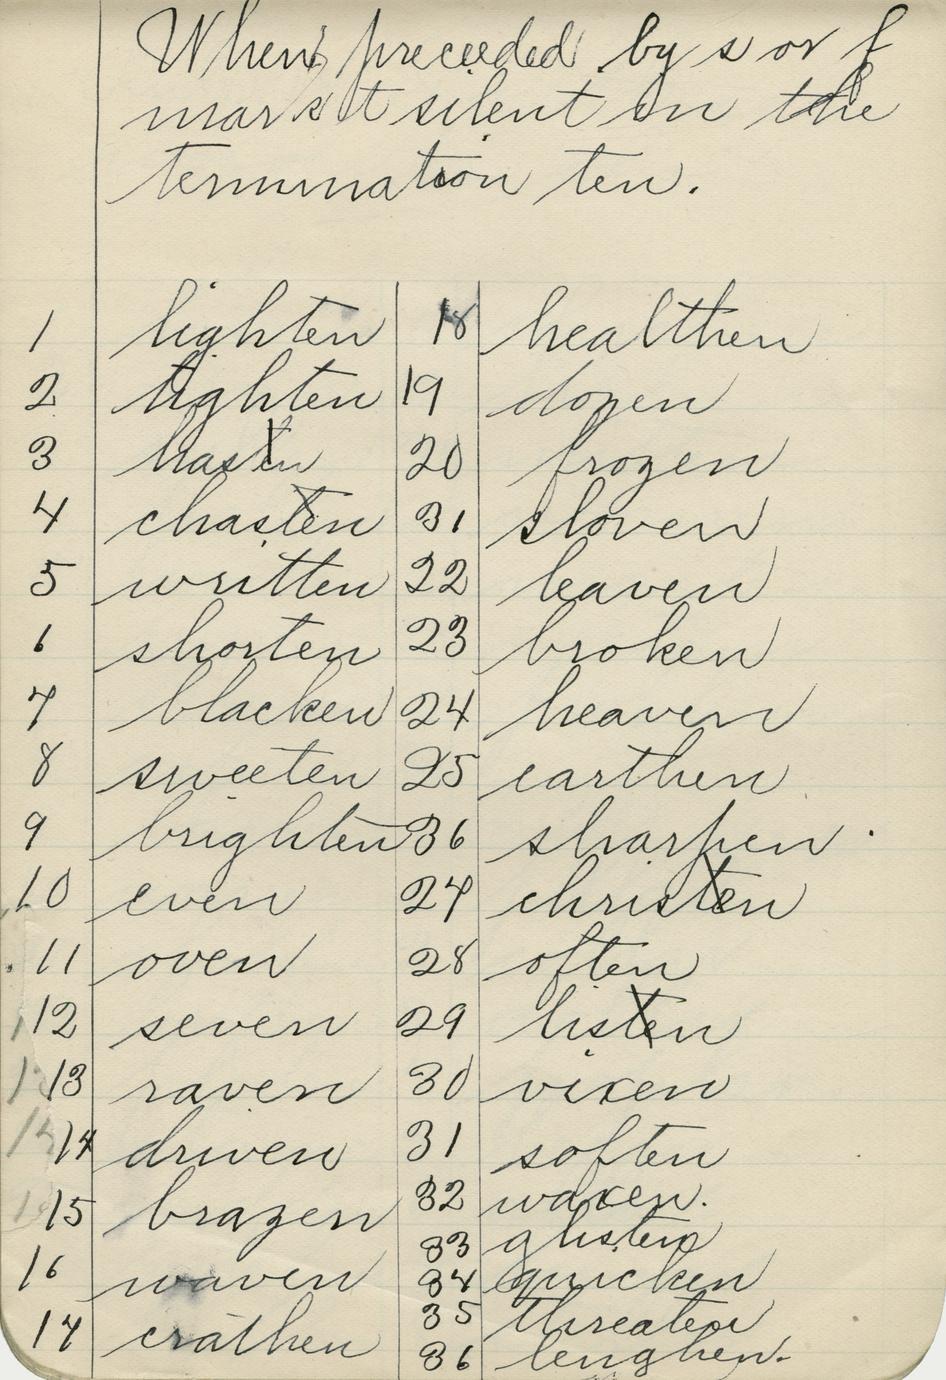 When preceeded by s or f
mark t silent in the
termination ten.
1 lighten
2 tighten
3 hasten
4 chasten
5 written
6 shorten
7 blacken
8 sweeten
9 brighten
10 even
11 oven
12 seven
13 raven
14 driven
15 brazen
16 waven
17 crathen
18 healthen
19 dozen
20 frozen
31 sloven
22 leaven
23 broken
24 heaven
25 earthen
36 sharpen.
27 christen
28 often
29 listen
30 vixen
31 soften
32 waxen.
33 glisten
34 quicken
35 threaten
36 lenghen.